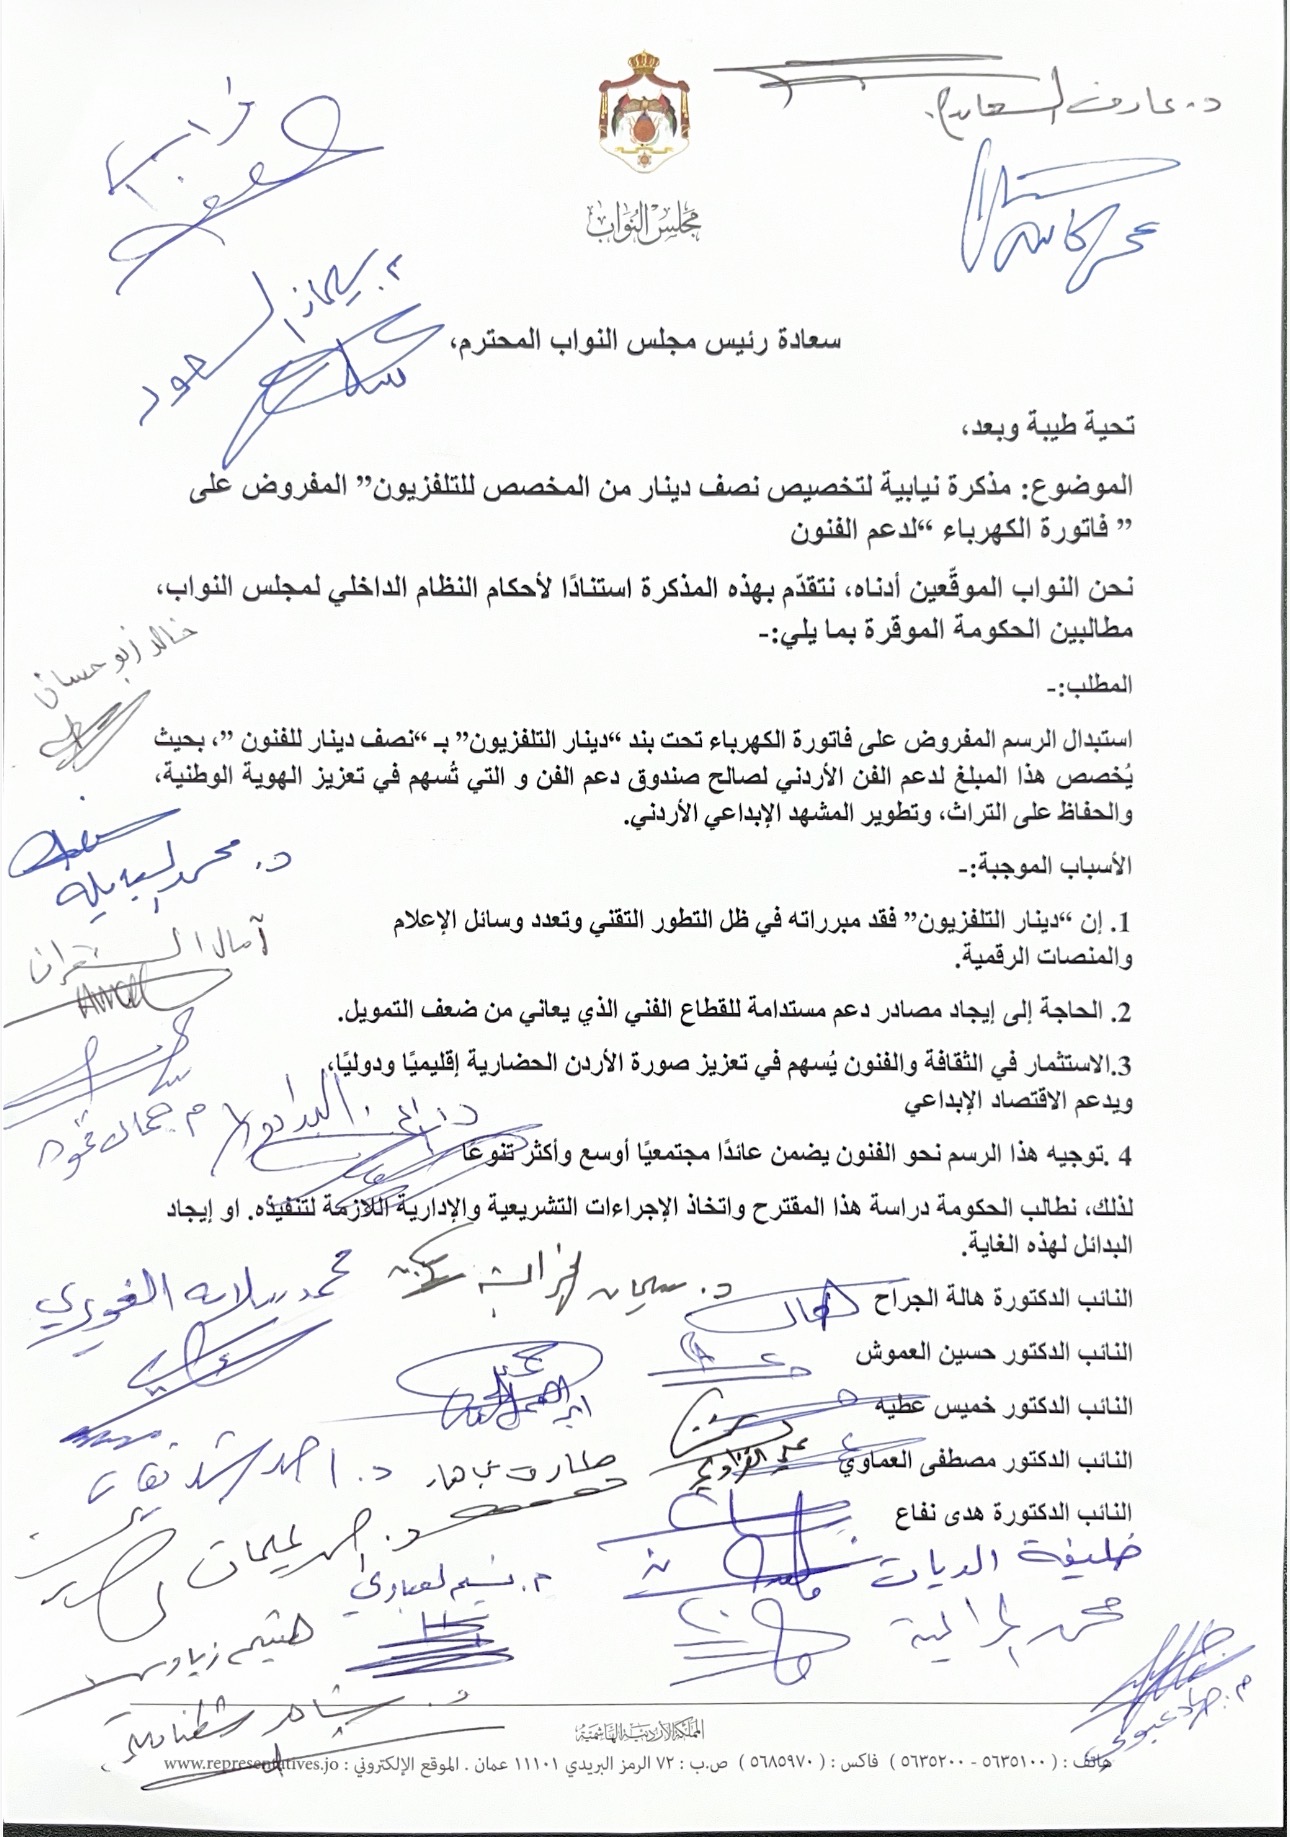 د. عارف السعايده
مجلس النواب
م. سليمان السعود
سعادة رئيس مجلس النواب المحترم،
تحية طيبة وبعد،
الموضوع: مذكرة نيابية لتخصيص نصف دينار من المخصص للتلفزيون” المفروض على
” فاتورة الكهرباء “لدعم الفنون
نحن النواب الموقّعين أدناه، نتقدّم بهذه المذكرة استنادًا لأحكام النظام الداخلي لمجلس النواب،
مطالبين الحكومة الموقرة بما يلي:-
خالد ابو حسان
المطلب:-
استبدال الرسم المفروض على فاتورة الكهرباء تحت بند “دينار التلفزيون” بـ “نصف دينار للفنون ”، بحيث
يُخصص هذا المبلغ لدعم الفن الأردني لصالح صندوق دعم الفن و التي تُسهم في تعزيز الهوية الوطنية،
والحفاظ على التراث، وتطوير المشهد الإبداعي الأردني.
د. محمد السبايلة
الأسباب الموجبة:-
1. إن “دينار التلفزيون” فقد مبرراته في ظل التطور التقني وتعدد وسائل الإعلام
والمنصات الرقمية.
آمال الشقران
2. الحاجة إلى إيجاد مصادر دعم مستدامة للقطاع الفني الذي يعاني من ضعف التمويل.
3.الاستثمار في الثقافة والفنون يُسهم في تعزيز صورة الأردن الحضارية إقليميًا ودوليًا،
ويدعم الاقتصاد الإبداعي
م. جمال قموه
4 .توجيه هذا الرسم نحو الفنون يضمن عائدًا مجتمعيًا أوسع وأكثر تنوعًا
لذلك، نطالب الحكومة دراسة هذا المقترح واتخاذ الإجراءات التشريعية والإدارية اللازمة لتنفيذه. او إيجاد
البدائل لهذه الغاية.
د. سليمان الخرابشة
محمد سلامه الغويري
النائب الدكتورة هالة الجراح
النائب الدكتور حسين العموش
النائب الدكتور خميس عطيه
النائب الدكتور مصطفى العماوي
د. احمد الشديفات
النائب الدكتورة هدى نفاع
خليفة الديات
م. نسيم العبادي
محمد المرايات
هيثم زيادين
د. شاهر شطناوي
م. جهاد عبوي
المملكة الأردنية الهاشمية
هاتف : ( ٥٦٣٥١٠٠ - ٥٦٣٥٢٠٠ ) فاكس : ( ٥٦٨٥٩٧٠ ) ص.ب : ٧٢ الرمز البريدي ١١١٠١ عمان . الموقع الإلكتروني : www.representatives.jo